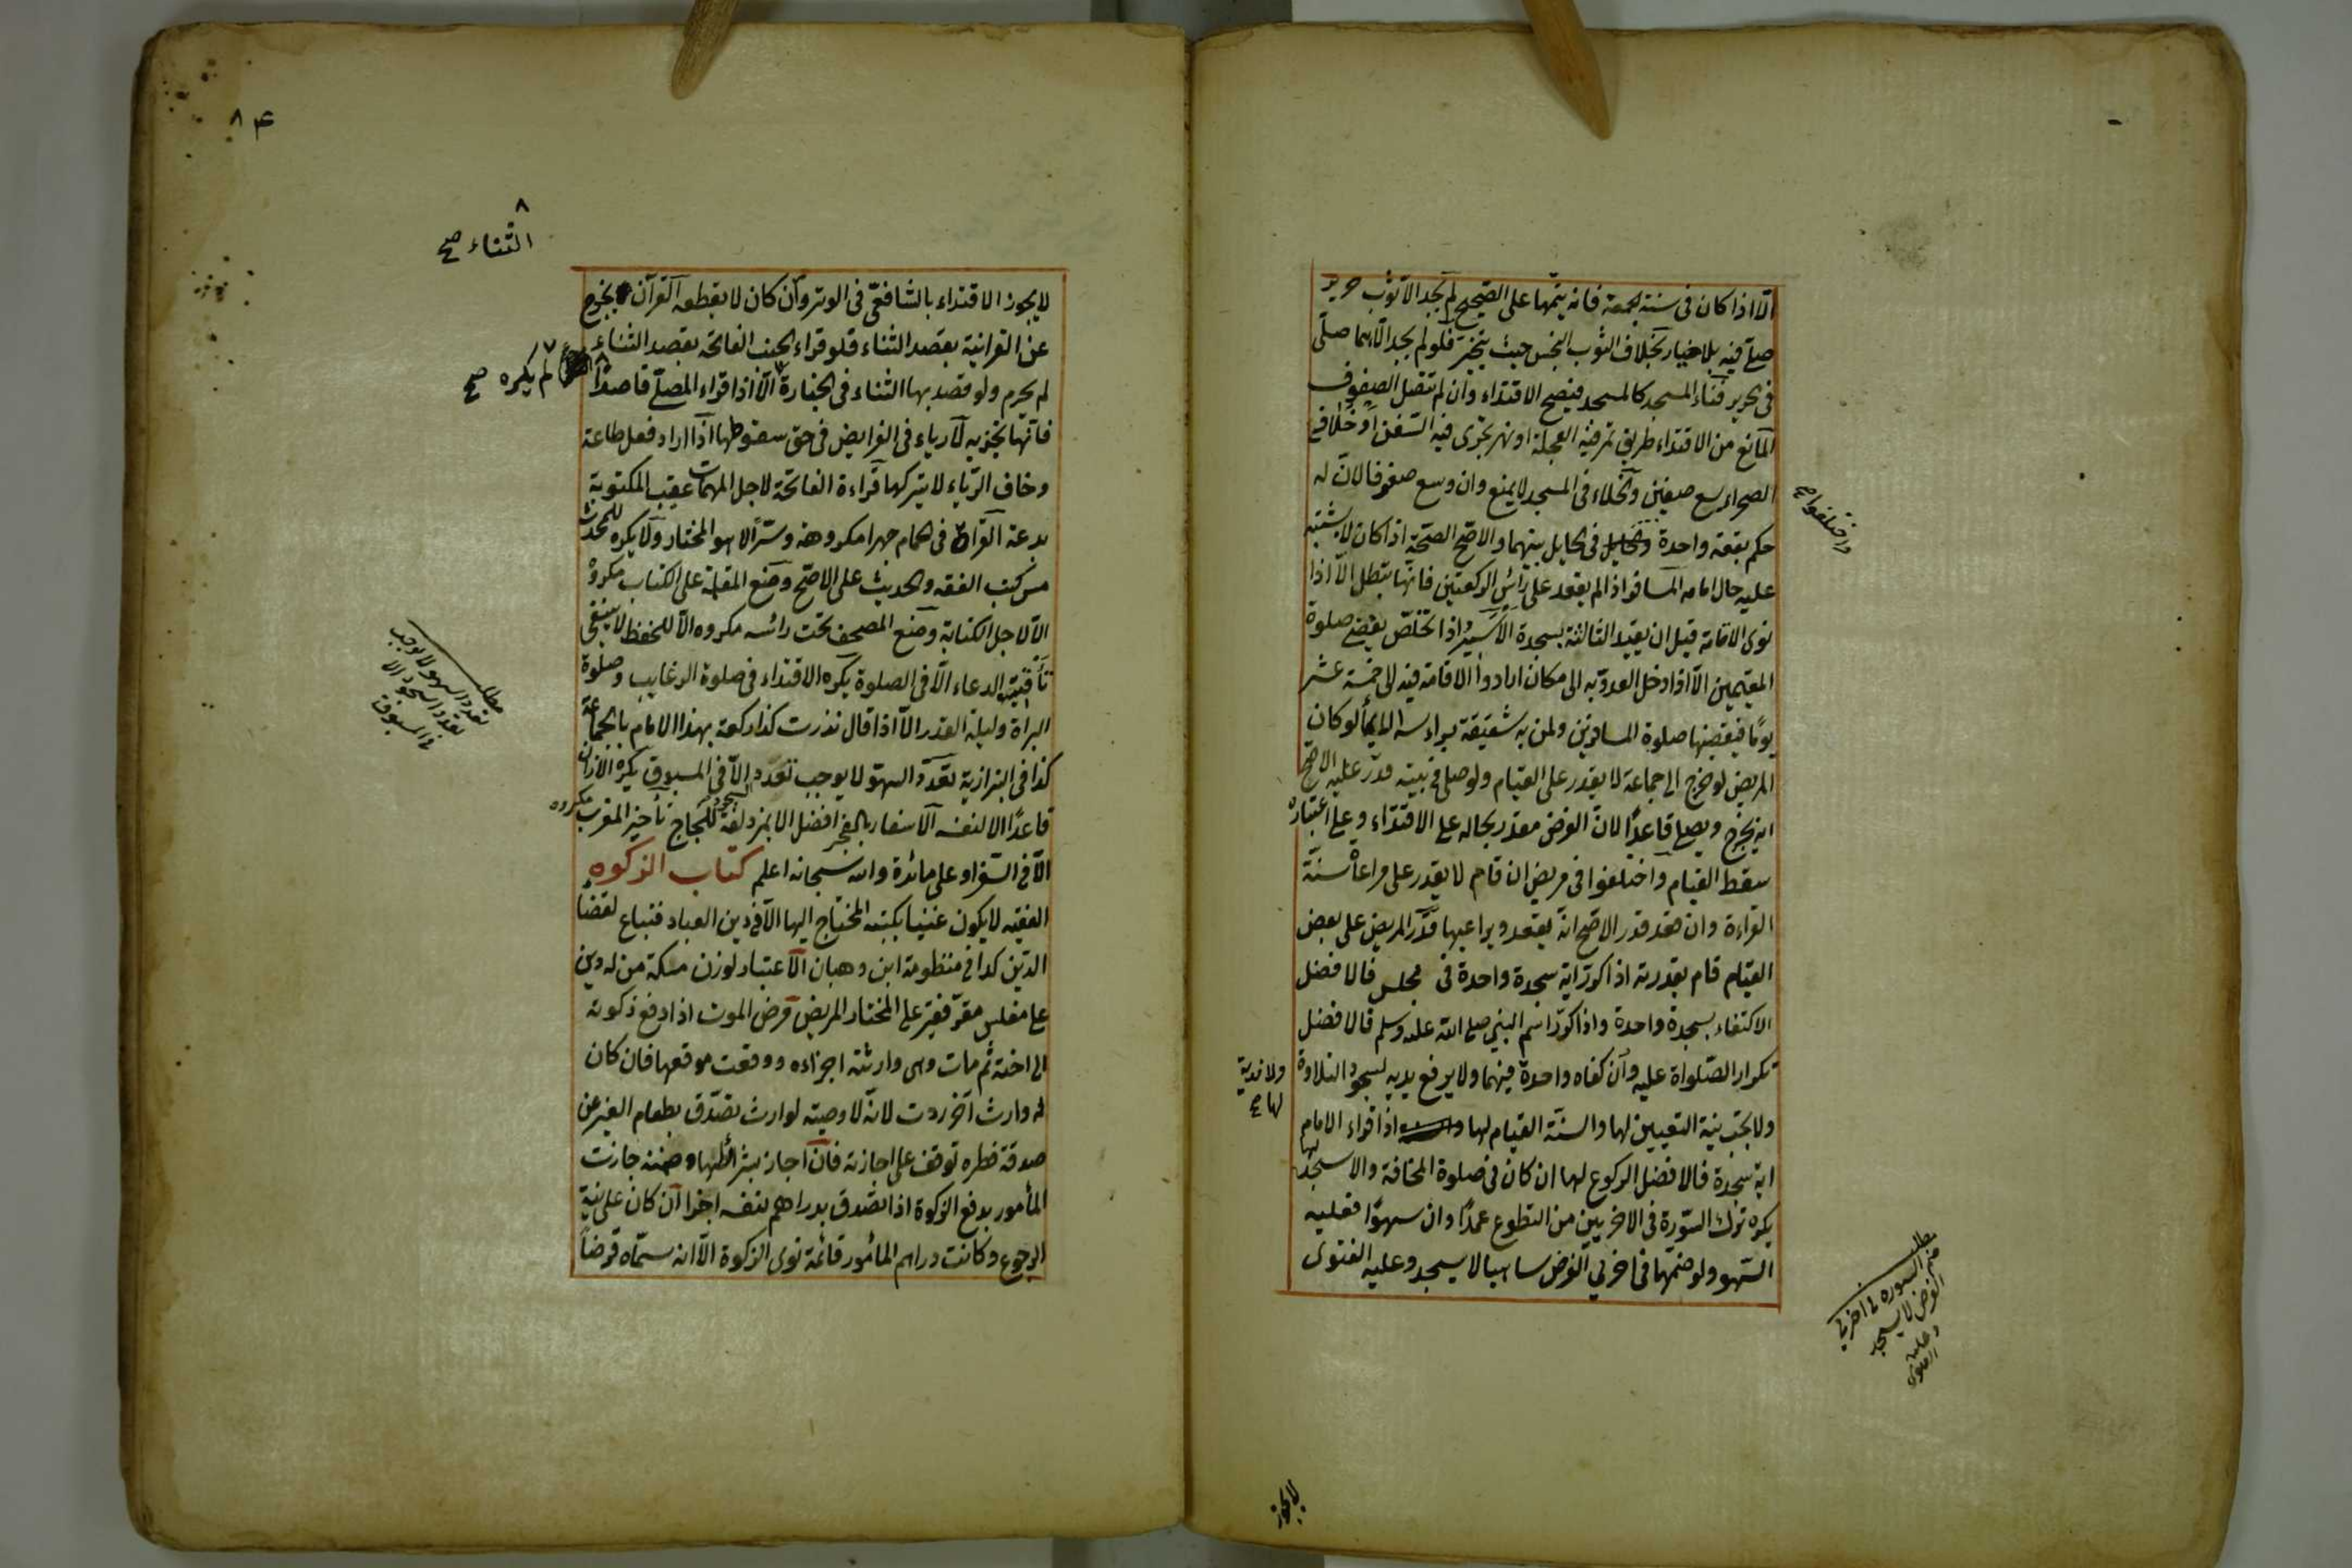 الا اذا كان فى سنة الجمعة فانه يتمها على الصحيح لم يجد الا ثوب حرير
صلى فيه بلا خيار بخلاف الثوب النجس حيث يتخير فلو لم يجد الا هما صلى
فى الحرير فناء المسجد كالمسجد فيصح الاقتداء وان لم تتصل الصفوف
المانع من الاقتداء طريق تمر فيه العجلة او نهر تجرى فيه السفن او خلاء فى
الصحراء يسع صفين والخلاء فى المسجد لا يمنع وان وسع صفوفا لان له
حكم بقعة واحدة فى الحايل بينهما والاصح الصحة اذا كان لا يشتبه
واختلفوا صح
عليه حال امامه المسافر اذا لم يقعد على رأس الركعتين فانها تبطل الا اذا
نوى الاقامة قبل ان يقيد الثالثة بسجدة الاسير اذا تخلص يقضى صلوة
المقيمين الا اذا دخل العدو به الى مكان ارادوا الاقامة فيه الى خمسة عشر
يوما فيقضيها صلوة المسافرين ولمن به شقيقة برأسه الايماء لو كان
المريض لو خرج الى جماعة لا يقدر على القيام ولو صلى فى بيته قدر عليه الاصح
انه يخرج ويصلى قاعدا لان الفرض مقدر بحاله على الاقتداء وعلى اعتباره
سقط القيام واختلفوا فى مريض ان قام لا يقدر على مراعاة سنة
القراءة وان قعد قدر الاصح انه يقعد ويراعيها قدر المريض على بعض
القيام قام بقدرته اذا كرر اية سجدة واحدة فى مجلس فالافضل
الاكتفاء بسجدة واحدة واذا كرر اسم النبى صلى الله عليه وسلم فالافضل
تكرار الصلواة عليه وان كفاه واحدة فيهما ولا يرفع يديه لسجود التلاوة
ولا فدية
لها صح
ولا يجب نية التعيين لها والسنة القيام لها اذا قراء الامام
اية سجدة فالافضل الركوع لها ان كان فى صلوة المخافتة والا سجد لها
يكره ترك السورة فى الاخريين من التطوع عمدا وان سهوا فعليه
السهو ولو ضمها فى اخريى الفرض ساهيا لا يسجد وعليه الفتوى
مطلب
ضم السورة فى اخريى
الفرض لا يسجد
وعليه
الفتوى
لا يجوز
٨٤
الثناء صح
لا يجوز الاقتداء بالشافعى فى الوتر وان كان لا يقطعه القرآن يخرج
عن القرانية بقصد الثناء فلو قراء الجنب الفاتحة بقصد الثناء
لم يحرم ولو قصد بها الثناء فى الجنازة الا اذا قراء المصلى قاصدا
لم يكره صح
فانها تجزيه لا رياء فى الفرايض فى حق سقوطها اذا اراد فعل طاعة
وخاف الرياء لا يتركها قراءة الفاتحة لاجل المهمات عقيب المكتوبة
بدعة القراة فى الحمام جهرا مكروهة وسرا لا هو المختار ولا يكره للمحدث
مس كتب الفقه والحديث على الاصح وضع المقلمة على الكتاب مكروه
الا لاجل الكتابة وضع المصحف تحت رأسه مكروه الا للحفظ لا ينبغى
تأقيت الدعاء الا فى الصلوة يكره الاقتداء فى صلوة الرغايب وصلوة
البراة وليلة القدر الا اذا قال نذرت كذا ركعة بهذا الامام بالجماعة
مطلب
تعدد السهو لا يوجب
تعدد السجود الا
فى المسبوق
كذا فى البزازية تعدد السهو لا يوجب تعدد السجود الا فى المسبوق يكره الاذان
قاعدا الا لنفسه الاسفار بالفجر افضل الا بمزدلفة للحجاج تأخير المغرب مكروه
الا فى السفر او على مائدة والله سبحانه اعلم كتاب الزكوة
الفقيه لا يكون غنيا بكتبه المحتاج اليها الا فى دين العباد فتباع لقضاء
الدين كذا فى منظومة ابن وهبان الاعتبار لوزن مكة من له دين
على مفلس مقر فقير على المختار المريض مرض الموت اذا دفع زكوته
الى اخته ثم مات وهى وارثته اجزاءه ووقعت موقعها فان كان
له وارث آخر ردت لانه لا وصية لوارث تصدق بطعام الغير عن
صدقة فطره توقف على اجازته فان اجاز بشرائطها وضمنه جازت
المأمور بدفع الزكوة اذا تصدق بدراهم نفسه اجزا ان كان على نية
الرجوع وكانت دراهم المأمور قائمة نوى الزكوة الا انه سماه قرضا